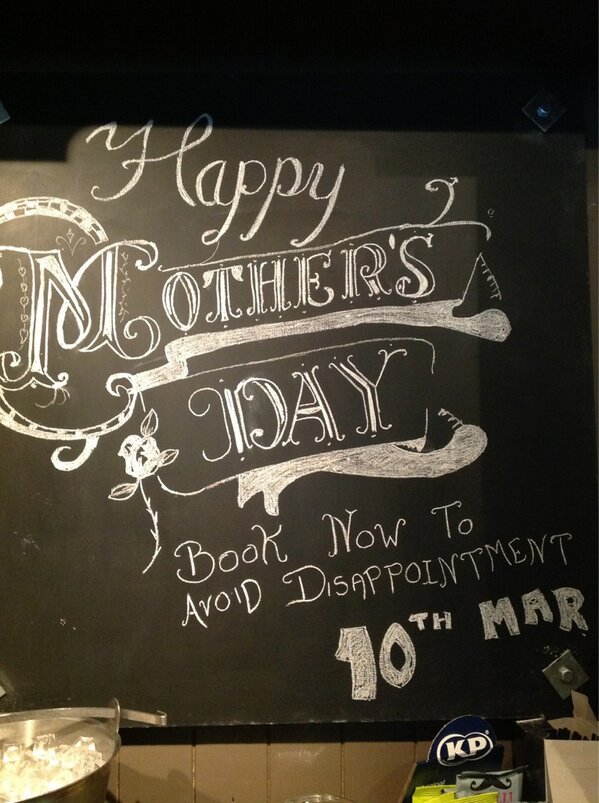 Happy
MOTHER'S
DAY
BOOK NOW TO
AVOID DISAPPOINTMENT
10TH MAR
KP